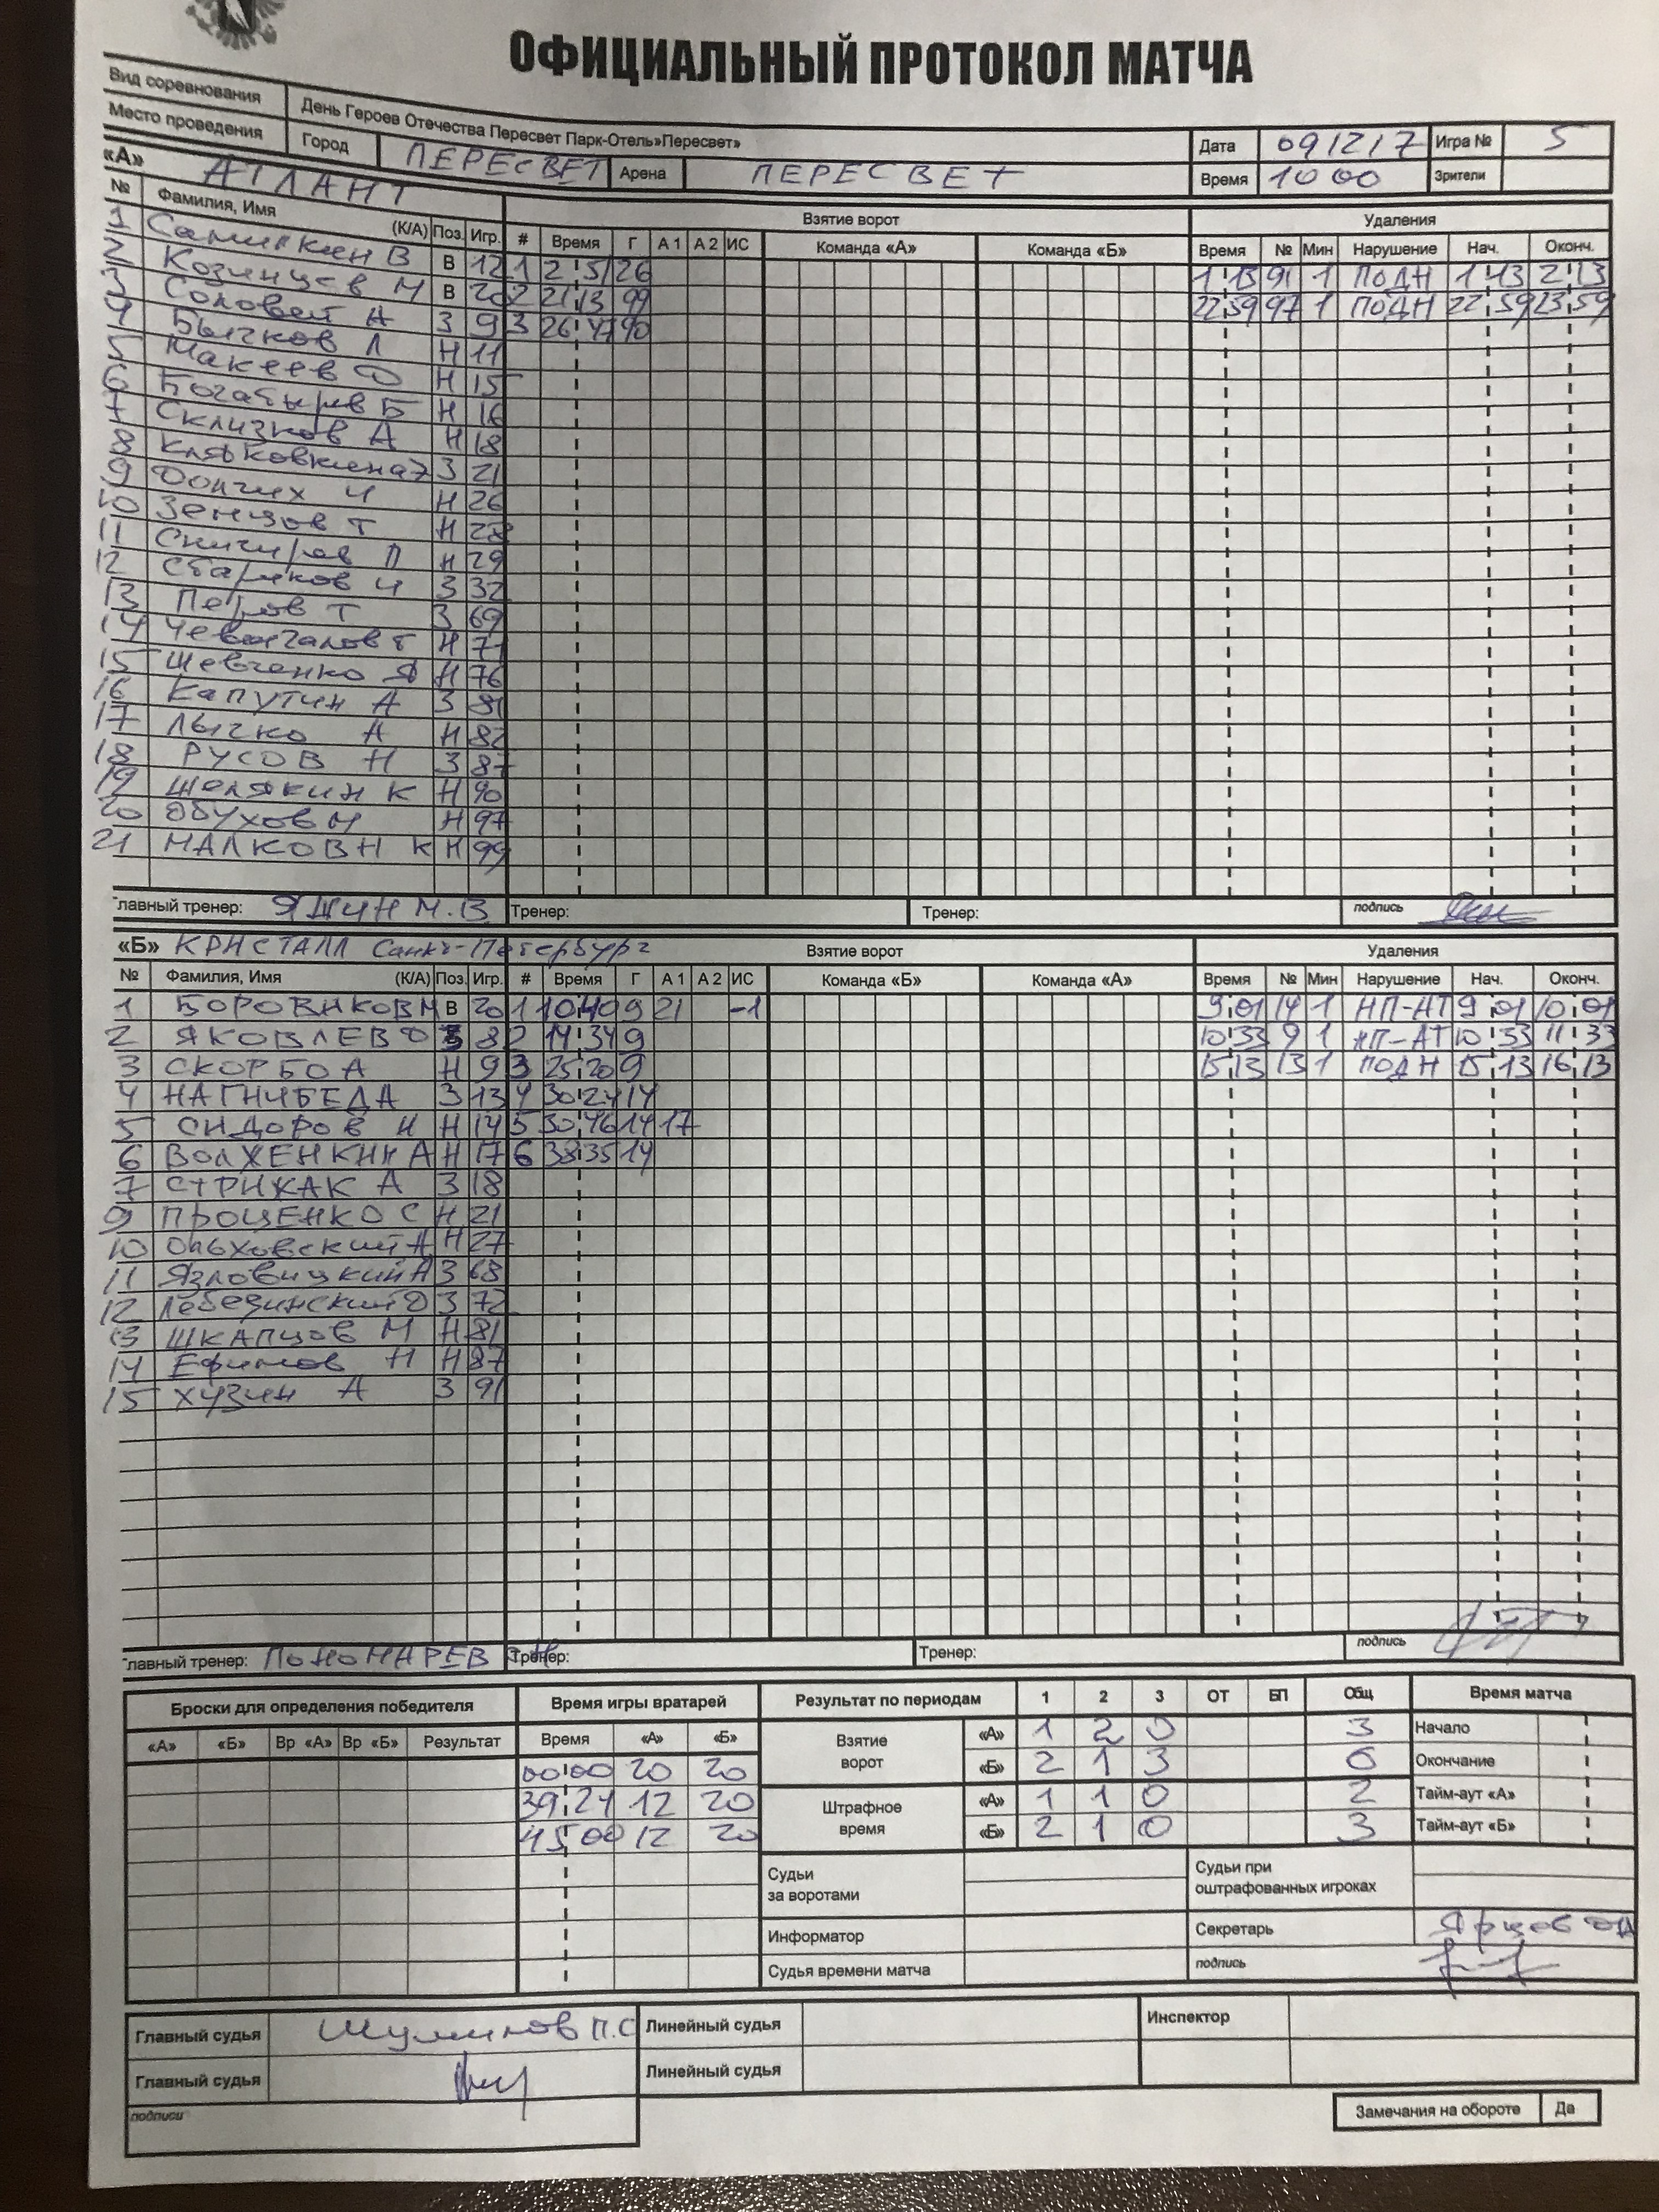 ОФИЦИАЛЬНЫЙ ПРОТОКОЛ МАТЧА
Вид соревнования День Героев Отечества Пересвет Парк-Отель»Пересвет»
Дата 091217 Игра № 5
Место проведения Город ПЕРЕСВЕТ Арена ПЕРЕСВЕТ Время 1000 Зрители
«А» АТЛАНТ
Взятие ворот Удаления
№ Фамилия, Имя (К/А) Поз. Игр. # Время Г А 1 А 2 ИС Команда «А» Команда «Б» Время № Мин Нарушение Нач. Оконч.
1 В В 12 1 2 51 26 1 13 91 1 ПОДН 1 13 2 13
2 Козинцев М В 20 2 21 13 99 22 59 97 1 ПОДН 22 59 23 59
3 Соловей А З 9 3 26 47 90
4 Бычков Л Н 11
5 Макеев Ф Н 15
6 Богатырев Б Н 16
7 Склизков А Н 18
8 З 21
9 И Н 26
10 Зенцов Т Н 28
11 П Н 29
12 Стариков И З 32
13 Петров Т З 69
14 Н 71
15 Шевченко Я Н 76
16 Капутин А З 81
17 Лычко А Н 82
18 РУСОВ Н З 87
19 Шелякин К Н 90
20 Обухов М Н 97
21 МАЛКОВ Н К Н 99
Главный тренер: ЯШИН М.В Тренер: Тренер: подпись
«Б» КРИСТАЛЛ Санкт-Петербург Взятие ворот Удаления
№ Фамилия, Имя (К/А) Поз. Игр. # Время Г А 1 А 2 ИС Команда «Б» Команда «А» Время № Мин Нарушение Нач. Оконч.
1 БОРОВИКОВ М В 20 1 10 40 9 21 -1 9 01 14 1 НП-АТ 9 01 10 01
2 ЯКОВЛЕВ Ф З 8 2 14 34 9 10 33 9 1 НП-АТ 10 33 11 33
3 СКОРБО А Н 9 3 25 20 9 15 13 13 1 ПОДН 15 13 16 13
4 НАГНИБЕДА З 13 4 30 24 14
5 СИДОРОВ Н Н 14 5 30 46 14 17
6 ВОЛЖЕНКИН А Н 17 6 38 35 14
7 СТРИЖАК А З 18
9 ПРОЦЕНКО С Н 21
10 Ольховский А Н 27
11 Язловицкий А З 68
12 Лебединский Д З 72
13 ШКАПЦОВ М Н 81
14 Ефимов Н Н 87
15 ХУЗИН А З 91
Главный тренер: ПОНОМАРЕВ Тренер: Тренер: подпись
Броски для определения победителя Время игры вратарей Результат по периодам 1 2 3 ОТ БП Общ Время матча
«А» «Б» Вр «А» Вр «Б» Результат Время «А» «Б»
Взятие ворот «А» 1 2 0 3 Начало
00 00 20 20 «Б» 2 1 3 6 Окончание
39 24 12 20 Штрафное время «А» 1 1 0 2 Тайм-аут «А»
45 00 12 20 «Б» 2 1 0 3 Тайм-аут «Б»
Судьи за воротами Судьи при оштрафованных игроках
Информатор Секретарь Ярцев
Судья времени матча подпись
Главный судья Шумилов П.С Линейный судья Инспектор
Главный судья Линейный судья
подписи
Замечания на обороте Да